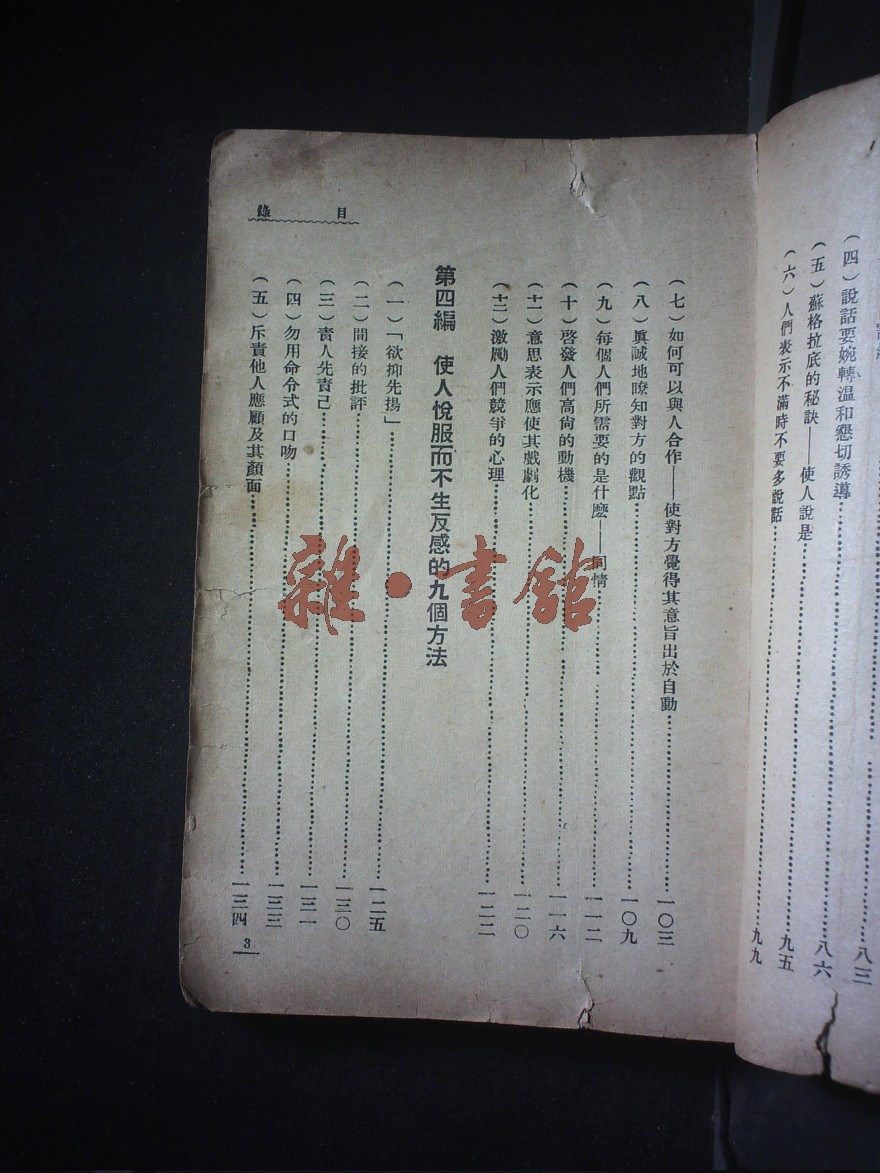 (四)說話要婉轉溫和懇切誘導……八三
(五)蘇格拉底的秘訣——使人說是……八六
(六)人們表示不滿時不要多說話……九五
九九
目錄
(七)如何可以與人合作——使對方覺得其意旨出於自動……一〇三
(八)眞誠地瞭知對方的觀點……一〇九
(九)每個人們所需要的是什麽——同情……一一二
(十)啓發人們高尙的動機……一一六
(十一)意思表示應使其戲劇化……一二〇
(十二)激勵人們競爭的心理……一二二
第四編 使人悅服而不生反感的九個方法
(一)「欲抑先揚」……一二五
(二)間接的批評……一三〇
(三)責人先責己……一三一
(四)勿用命令式的口吻……一三三
(五)斥責他人應顧及其顏面……一三四
3
雜·書館